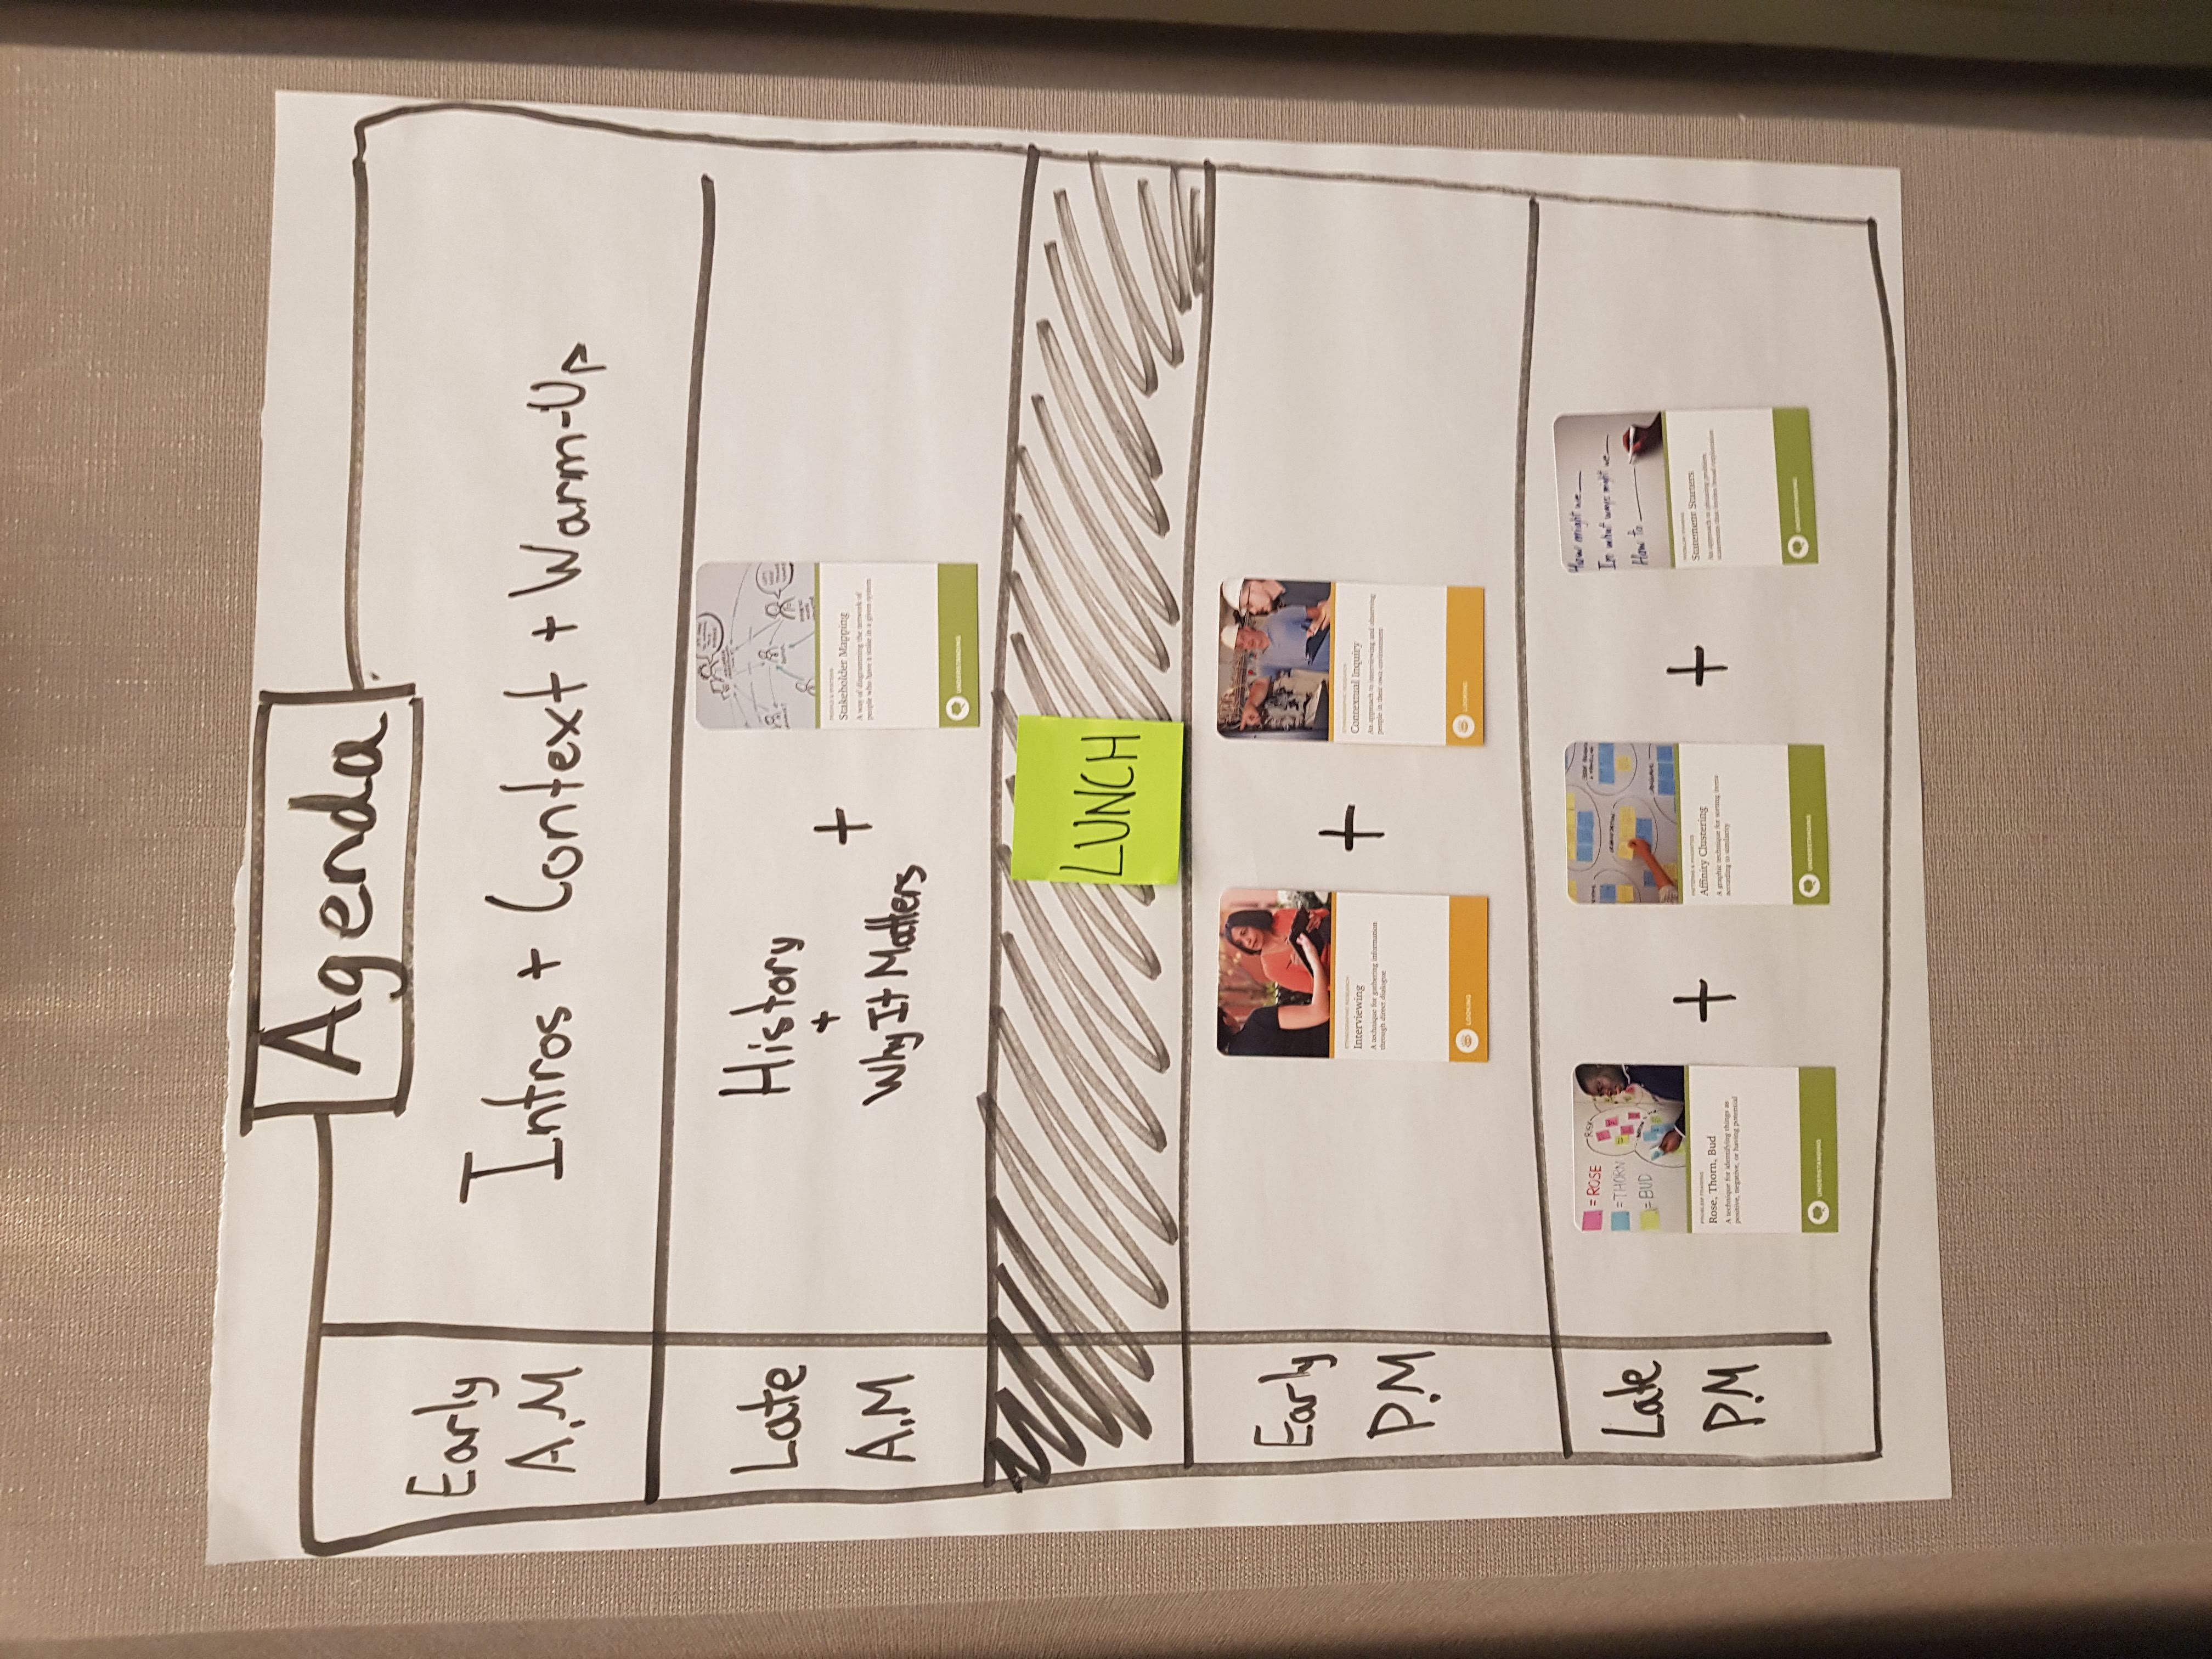 Agenda
Early
A.M
Intros + Context + Warm-Up
Late
A.M
History
+
Why It Matters
+
PEOPLE & SYSTEMS
Stakeholder Mapping
A way of diagramming the network of
people who have a stake in a given system
UNDERSTANDING
LUNCH
Early
P.M
ETHNOGRAPHIC RESEARCH
Interviewing
A technique for gathering information
through direct dialogue
LOOKING
+
ETHNOGRAPHIC RESEARCH
Contextual Inquiry
An approach to interviewing and observing
people in their own environment
LOOKING
Late
P.M
= ROSE
= THORN
= BUD
RISK
PROBLEM FRAMING
Rose, Thorn, Bud
A technique for identifying things as
positive, negative, or having potential
UNDERSTANDING
+
PATTERNS & PRIORITIES
Affinity Clustering
A graphic technique for sorting items
according to similarity
UNDERSTANDING
+
How might we
In what ways might we
How to
PROBLEM FRAMING
Statement Starters
An approach to phrasing problem
statements that invites broad exploration
UNDERSTANDING